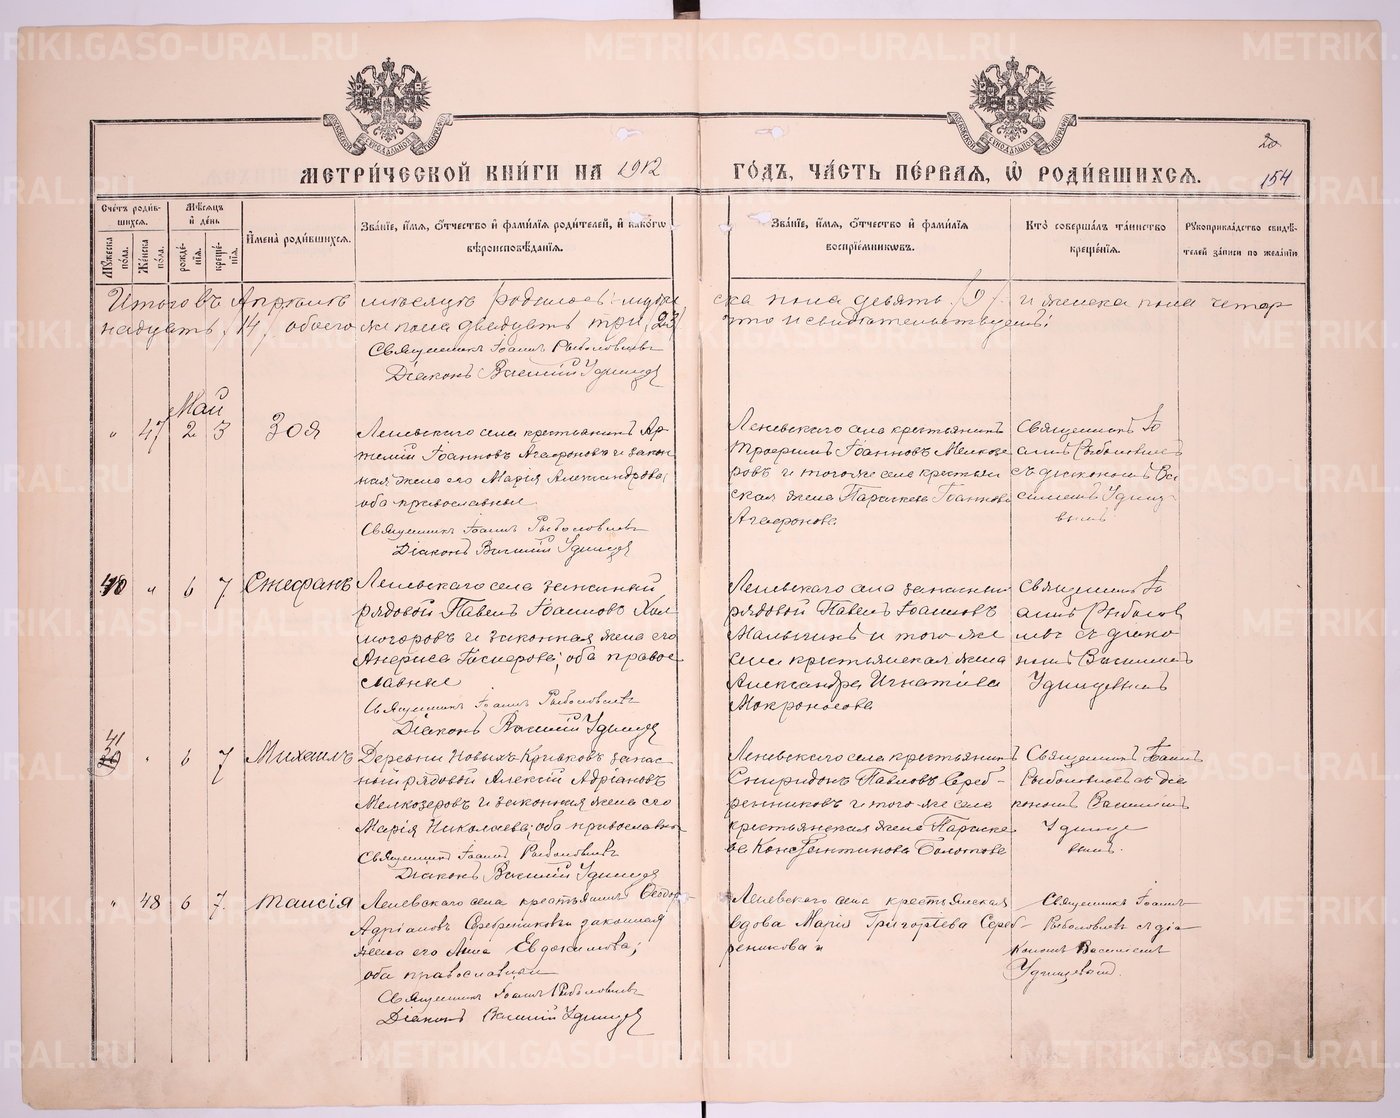 METRIKI.GASO-URAL.RU
20
154
МЕТРИ́ЧЕСКОЙ КНИ́ГИ НА 1912 ГО́ДЪ, ЧА́СТЬ ПЕ́РВАЯ, Ѡ РОДИ́ВШИХСЯ.
Сче́тъ роди́вшихся.
Мꙋ́жеска по́ла.
Же́нска по́ла.
Мѣ́сяцъ и де́нь
рожде́нїя.
креще́нїя.
И҆мена̀ роди́вшихся.
Зва́нїе, и҆́мя, о҆́тчество и҆ фами́лїя роди́телей, и҆ како́гѡ вѣроисповѣ́данїя.
Зва́нїе, и҆́мя, о҆́тчество и҆ фами́лїя воспрїе́мниковъ.
Кто̀ соверша́лъ та́инство креще́нїя.
Рꙋкоприкла́дство свидѣ́телей за́писи по жела́нїю.
Итого въ Апрѣлѣ мѣсяцѣ родилось: мужеска пола девять /9/ и женска пола четыр
надцать /14/ обоего же пола двадцать три /23/ что и свидѣтельствуемъ:
Священникъ Іоаннъ Рыболовлевъ
Діаконъ Василій Удинцев
Май
" 47 2 3 Зоя
Леневскаго села крестьянинъ Ар
темій Іоанновъ Агафоновъ и закон
ная жена его Марія Александрова;
оба православные
Священникъ Іоаннъ Рыболовлевъ
Діаконъ Василій Удинцев
Леневскаго села крестьянинъ
Трофимъ Іоанновъ Мелкозе
ровъ и того же села крестьян
ская жена Параскева Іоаннова
Агафонова
Священникъ Іо
аннъ Рыболовлевъ
съ діакономъ Ва
силіемъ Удинце
вымъ
40 " 6 7 Стефанъ
Леневскаго села запасный
рядовой Павелъ Іоанновъ Хол
могоровъ и законная жена его
Анфиса Гаспарова; оба право
славные
Священникъ Іоаннъ Рыболовлевъ
Діаконъ Василій Удинцев
Леневскаго села запасный
рядовой Павелъ Іоанновъ
Малыгинъ и того же
села крестьянская жена
Александра Игнатіева
Мокроносова
Священникъ Іо
аннъ Рыболов
левъ съ діако
номъ Василіемъ
Удинцевымъ
41 " 6 7 Михаилъ
Деревни Новыхъ Кривковъ запас
ный рядовой Алексій Адріановъ
Мелкозеровъ и законная жена его
Марія Николаева; оба православны
Священникъ Іоаннъ Рыболовлевъ
Діаконъ Василій Удинцев
Леневскаго села крестьянинъ
Спиридонъ Павловъ Сереб-
ренниковъ и того же села
крестьянская жена Параске
ва Константинова Болотова
Священникъ Іоаннъ
Рыболовлевъ съ діа
кономъ Василіемъ
Удинце
вымъ.
" 48 6 7 Таисія
Леневскаго села крестьянинъ Ѳеодоръ
Адріановъ Серебрениковъ законная
жена его Анна Евдокимова;
оба православныи
Священникъ Іоаннъ Рыболовлевъ
Діаконъ Василій Удинцев
Леневскаго села крестьянская
вдова Марія Григоріева Сереб-
реникова
Священникъ Іоаннъ
Рыболовлевъ съ діа-
кономъ Василіемъ
Удинцевым.